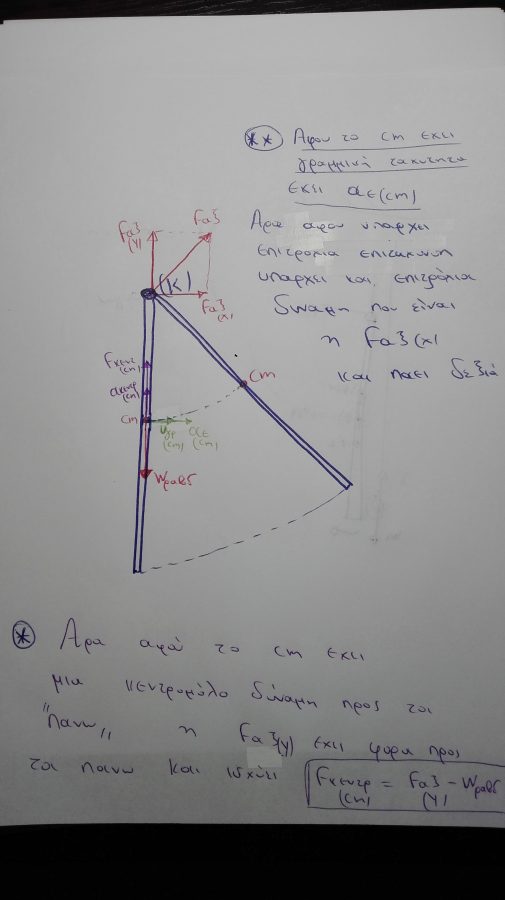 ** Αφου το cm εχει
γραμμικη ταχυτητα
εχει αε(cm)
Αρα αφου υπαρχει
επιτροχια επιταχυνση
υπαρχει και επιτρόχια
δυναμη που είναι
η Fαξ(x)
και παει δεξιά
Fαξ
(y)
Fαξ
(K)
Fαξ
(x)
Fκεντ
(cm)
ακεντρ
(cm)
cm
cm
υγρ
(cm)
αε
(cm)
Wραβδ
* Αρα αφού το cm εχει
μια κεντρομόλο δύναμη προς τα
"πανω" η Fαξ(y) εχει φορα προς
τα πανω και ισχύει Fκεντρ = Fαξ - Wραβδ
(cm) (y)